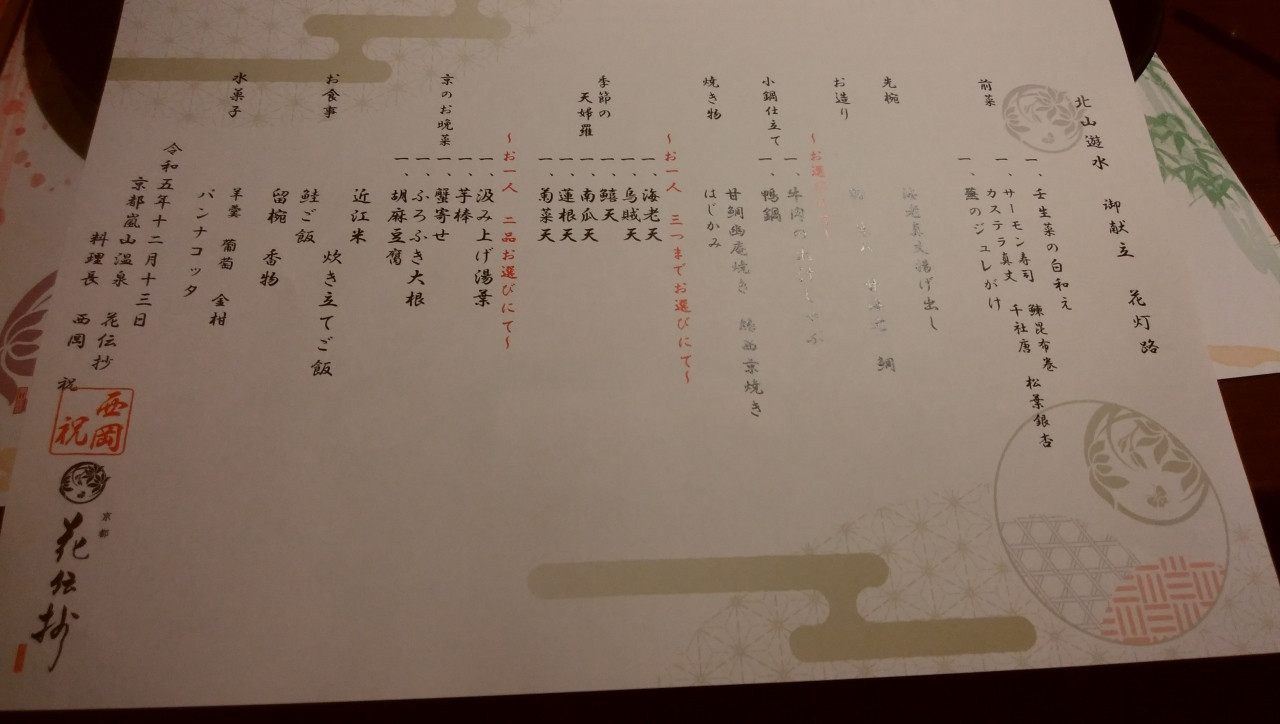 北山遊水 御献立 花灯路
前菜
一、壬生菜の白和え 鰊昆布巻 松葉銀杏
一、サーモン寿司 千社唐
カステラ真丈
一、蕪のジュレがけ
先椀
海老真丈揚げ出し
お造り
鯛
小鍋仕立て
〜お選び
一、牛肉の
一、鴨鍋
焼き物
甘鯛幽庵焼き 西京焼き
はじかみ
季節の
天婦羅
〜お一人 三つまでお選びにて〜
一、海老天
一、烏賊天
一、鱚天
一、南瓜天
一、蓮根天
一、菊菜天
京のお晩菜
〜お一人 二品お選びにて〜
一、汲み上げ湯葉
一、芋棒
一、蟹寄せ
一、ふろふき大根
一、胡麻豆腐
お食事
近江米 炊き立てご飯
鮭ご飯
留椀 香物
水菓子
羊羹 葡萄 金柑
パンナコッタ
令和五年十二月十三日
京都嵐山温泉 花伝抄
料理長 西岡 祝
西岡
祝
京都
花伝抄